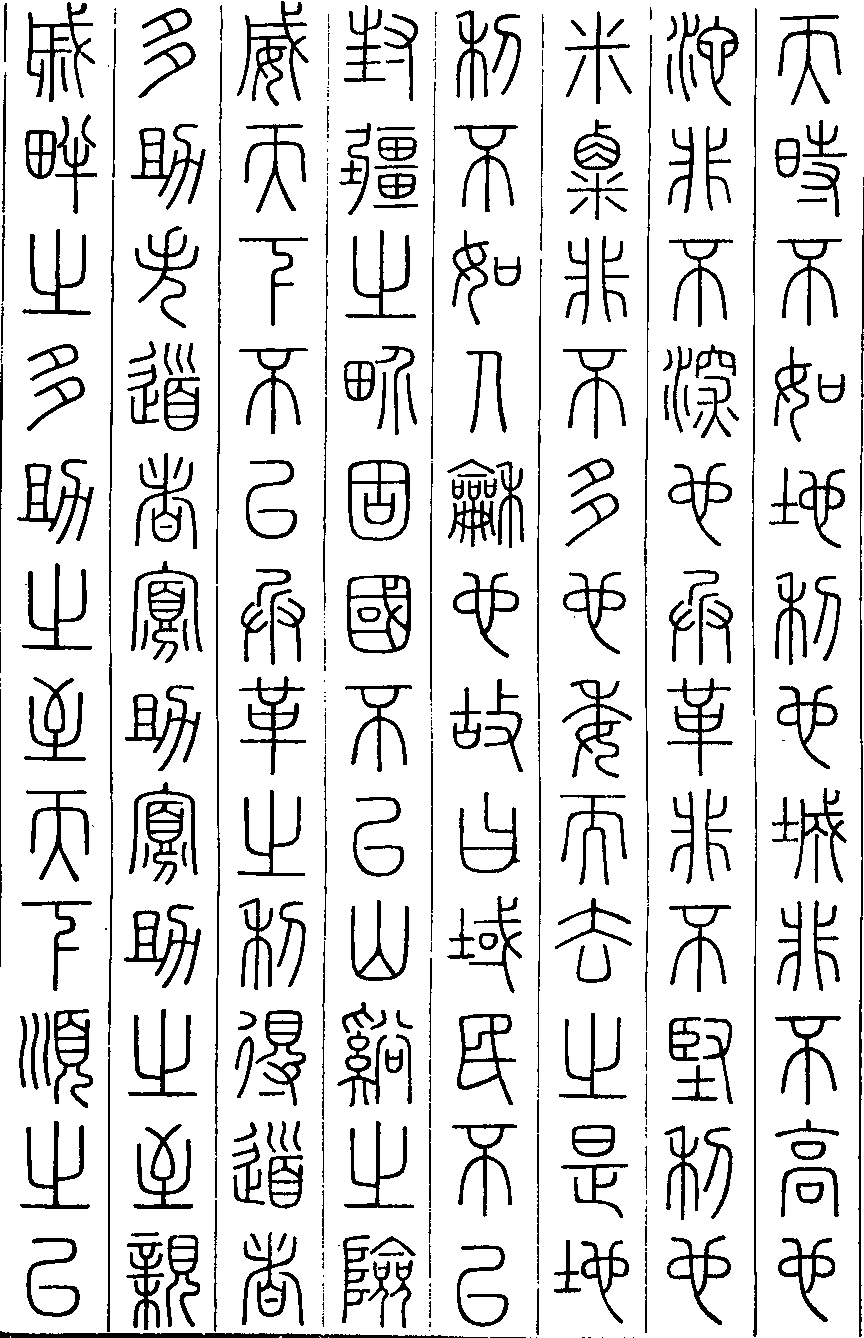 天時不如地利也城非不高也
池非不深也兵革非不堅利也
米粟非不多也委而去之是地
利不如人龢也故曰域民不以
封疆之畍固國不以山谿之險
威天下不以兵革之利得道者
多助失道者寡助寡助之至親
戚畔之多助之至天下順之以